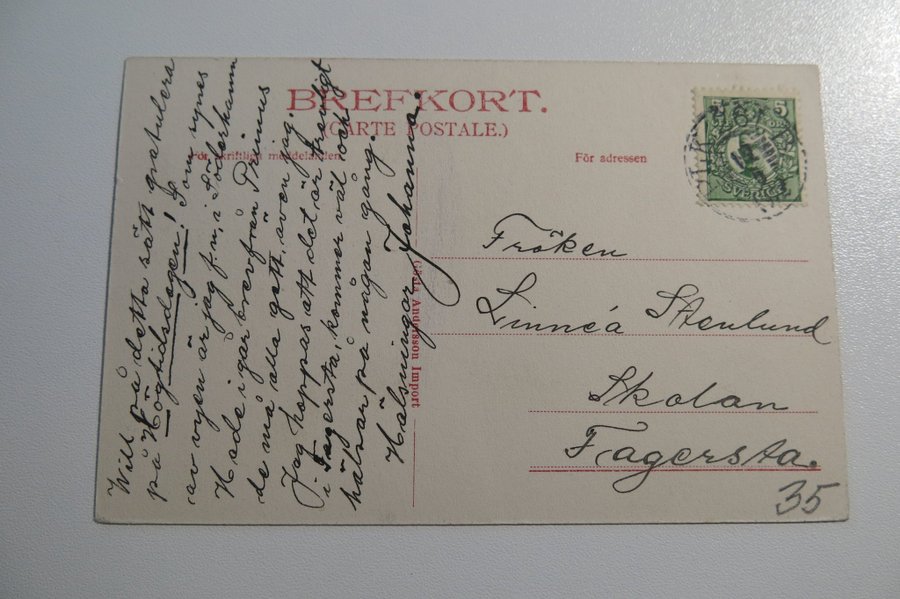 BREFKORT.
(CARTE POSTALE.)
För skriftliga meddelanden
För adressen
Will på detta sätt gratulera
på Högtidsdagen! Som synes
av vyen är jag f.n. i Söderhamn
Hade igår brev från Primus
de må alla gott, även jag.
Jag hoppas att det är trevligt
i Fagersta, kommer väl och
hälsar på någon gång.
Hälsningar Johanna.
Gösta Andersson Import
5 5
SVERIGE
Fröken
Linnéa Stenlund
Skolan
Fagersta.
35